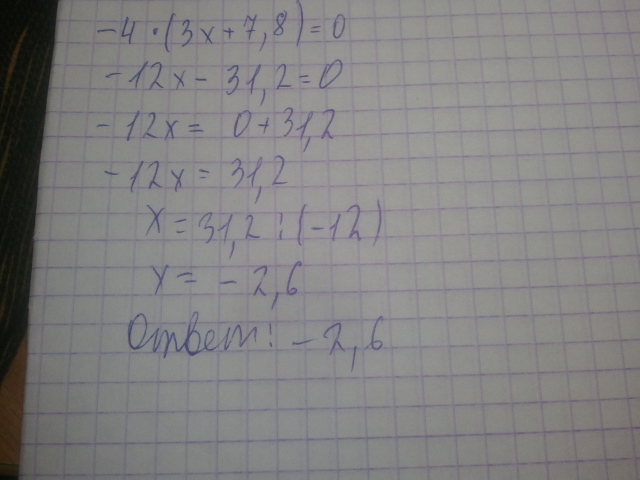 -4·(3x+7,8)=0
-12x-31,2=0
-12x= 0+31,2
-12x=31,2
x=31,2:(-12)
x=-2,6
Ответ: -2,6